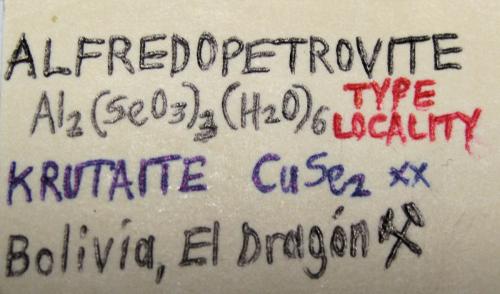 ALFREDOPETROVITE
Al2(SeO3)3(H2O)6 TYPE LOCALITY
KRUTAITE CuSe2 xx
Bolivia, El Dragón ⚒